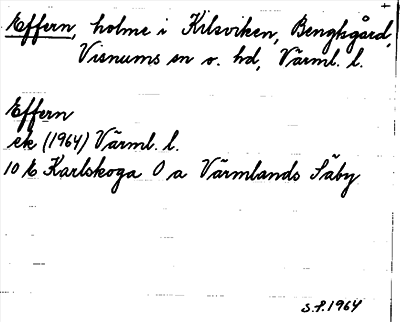 Effern, holme i Kilsviken, Bengtsgård,
Visnums sn o. hd, Värml. l.
Effern
ek (1964) Värml. l.
10 E Karlskoga O a Värmlands Säby
S.F. 1964